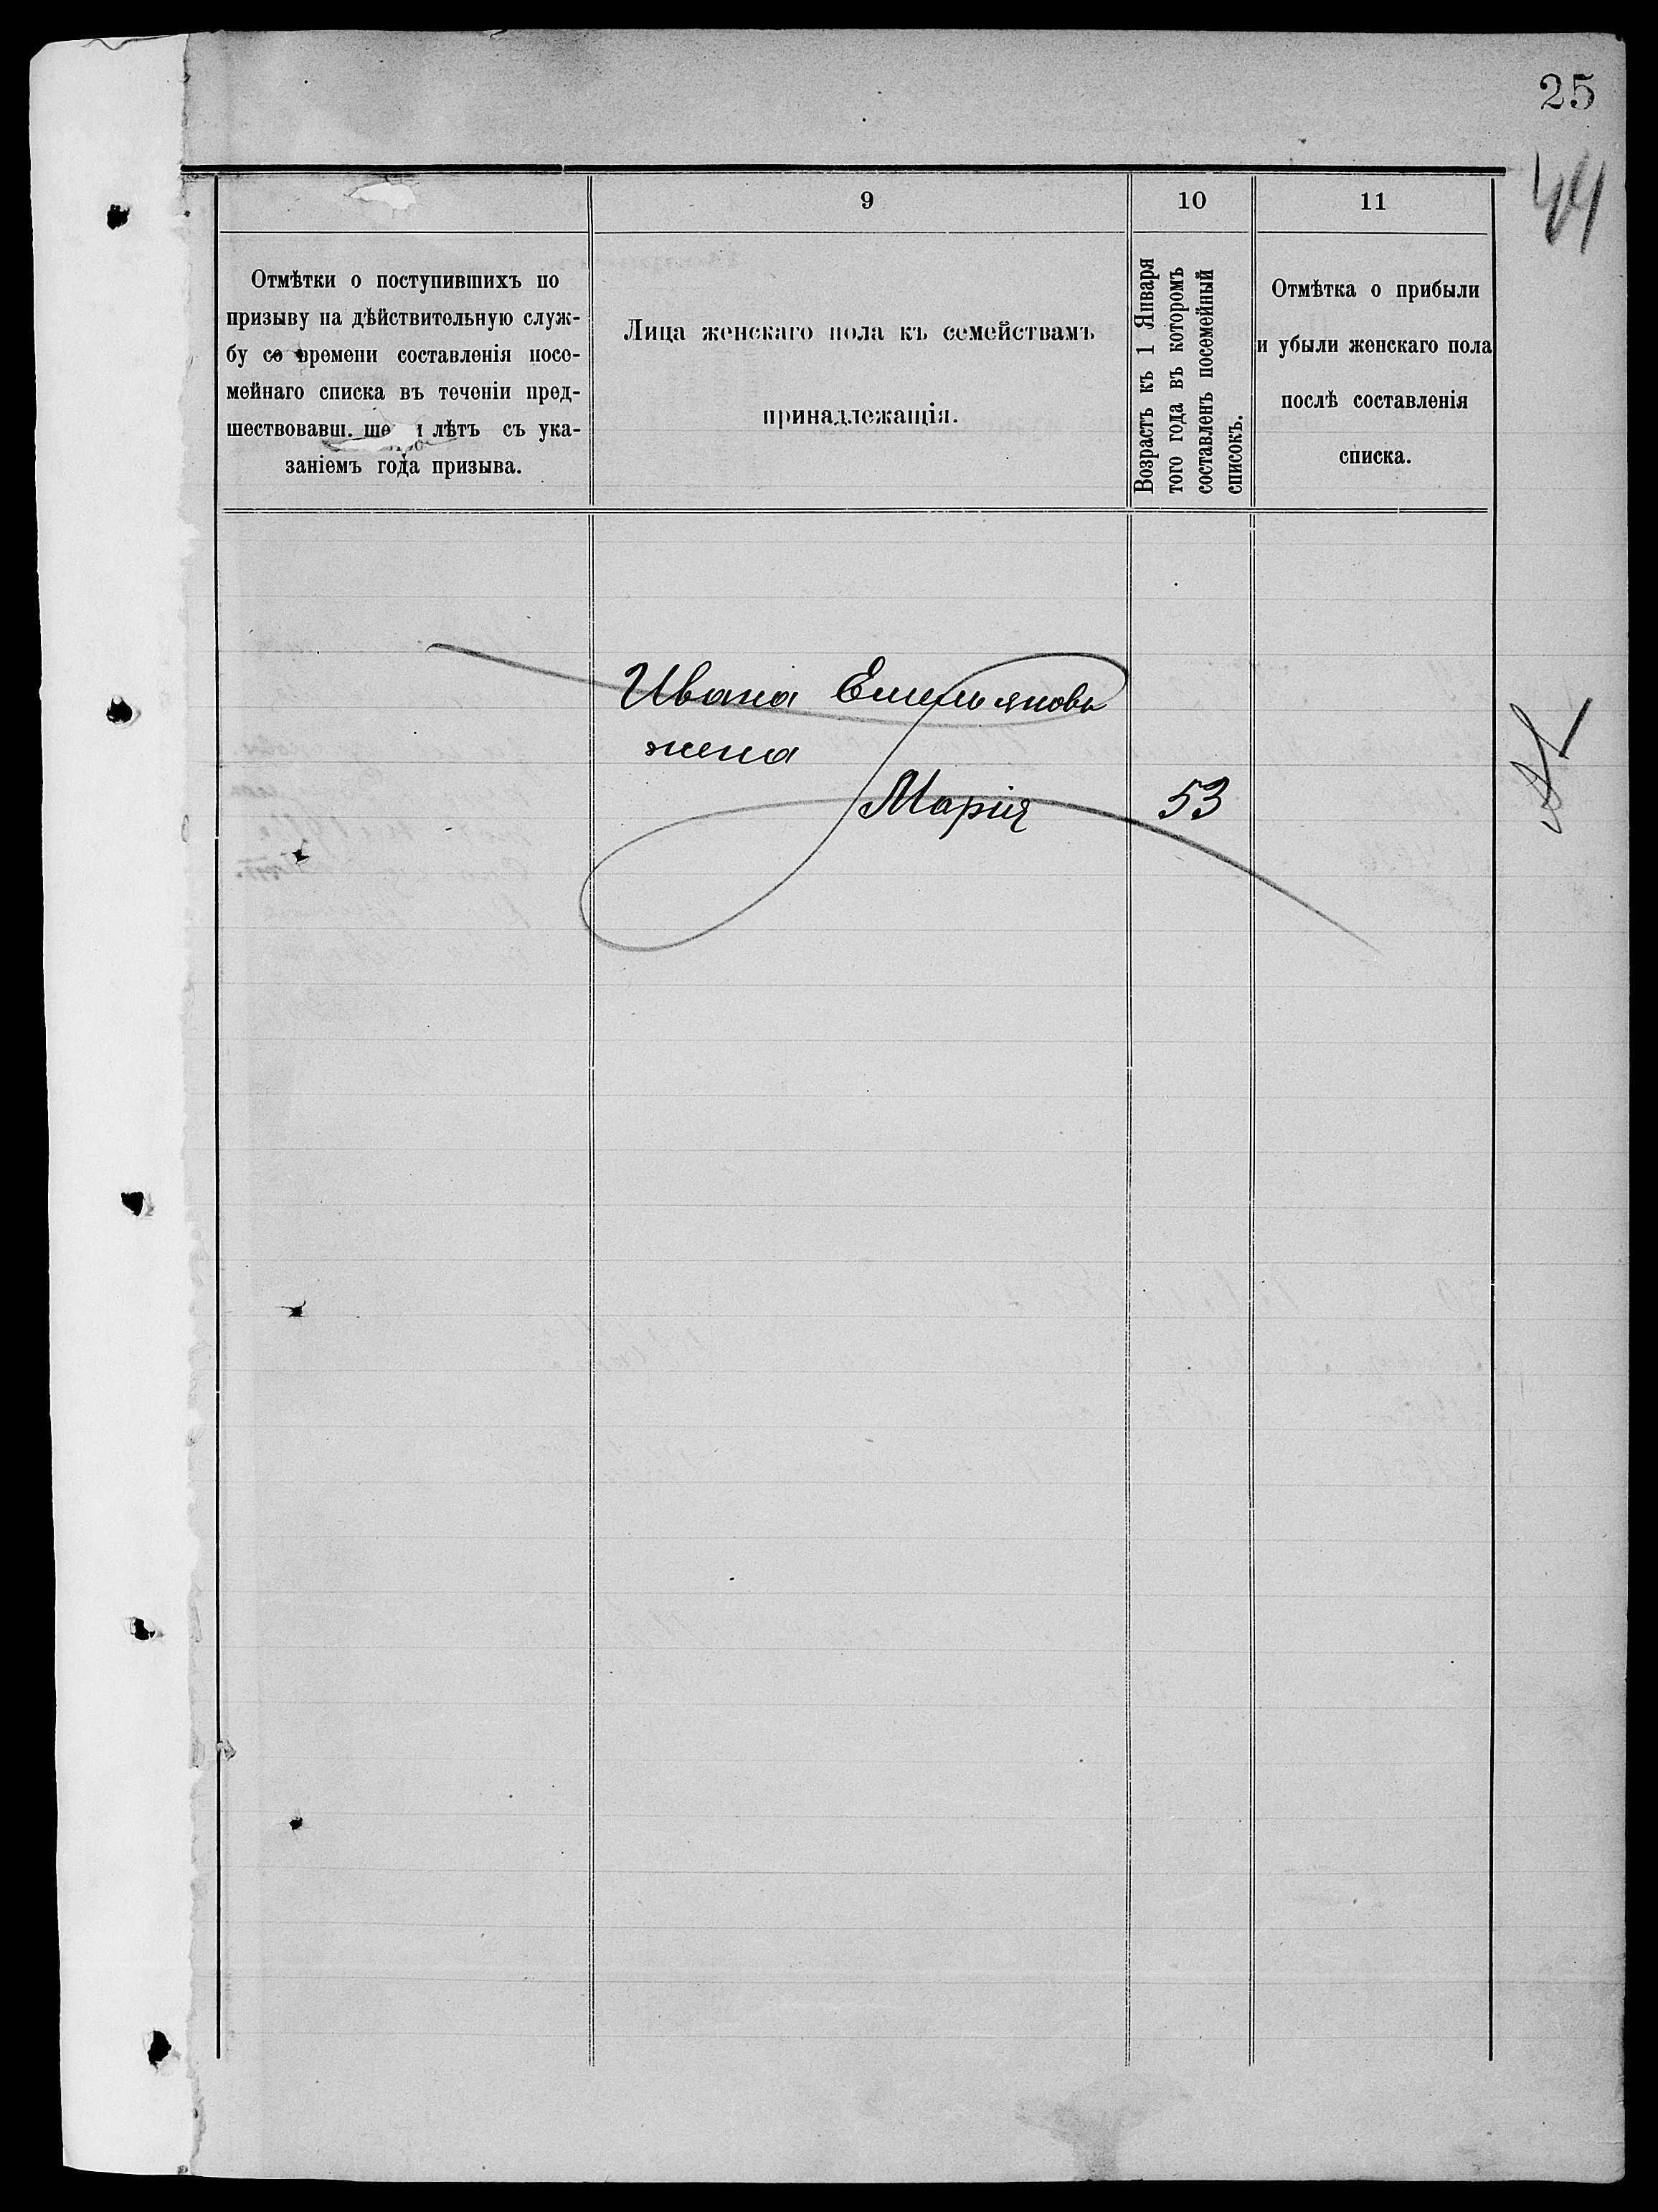 25
44
9
10
11
Отмѣтки о поступившихъ по
призыву на дѣйствительную служ-
бу со времени составленія посе-
мейнаго списка въ теченіи пред-
шествовавш. ше и лѣтъ съ ука-
заніемъ года призыва.
Лица женскаго пола къ семействамъ
принадлежащія.
Возрастъ къ 1 Января
того года въ которомъ
составленъ посемейный
списокъ.
Отмѣтка о прибыли
и убыли женскаго пола
послѣ составленія
списка.
Ивана Емельянова
жена
Марія 53